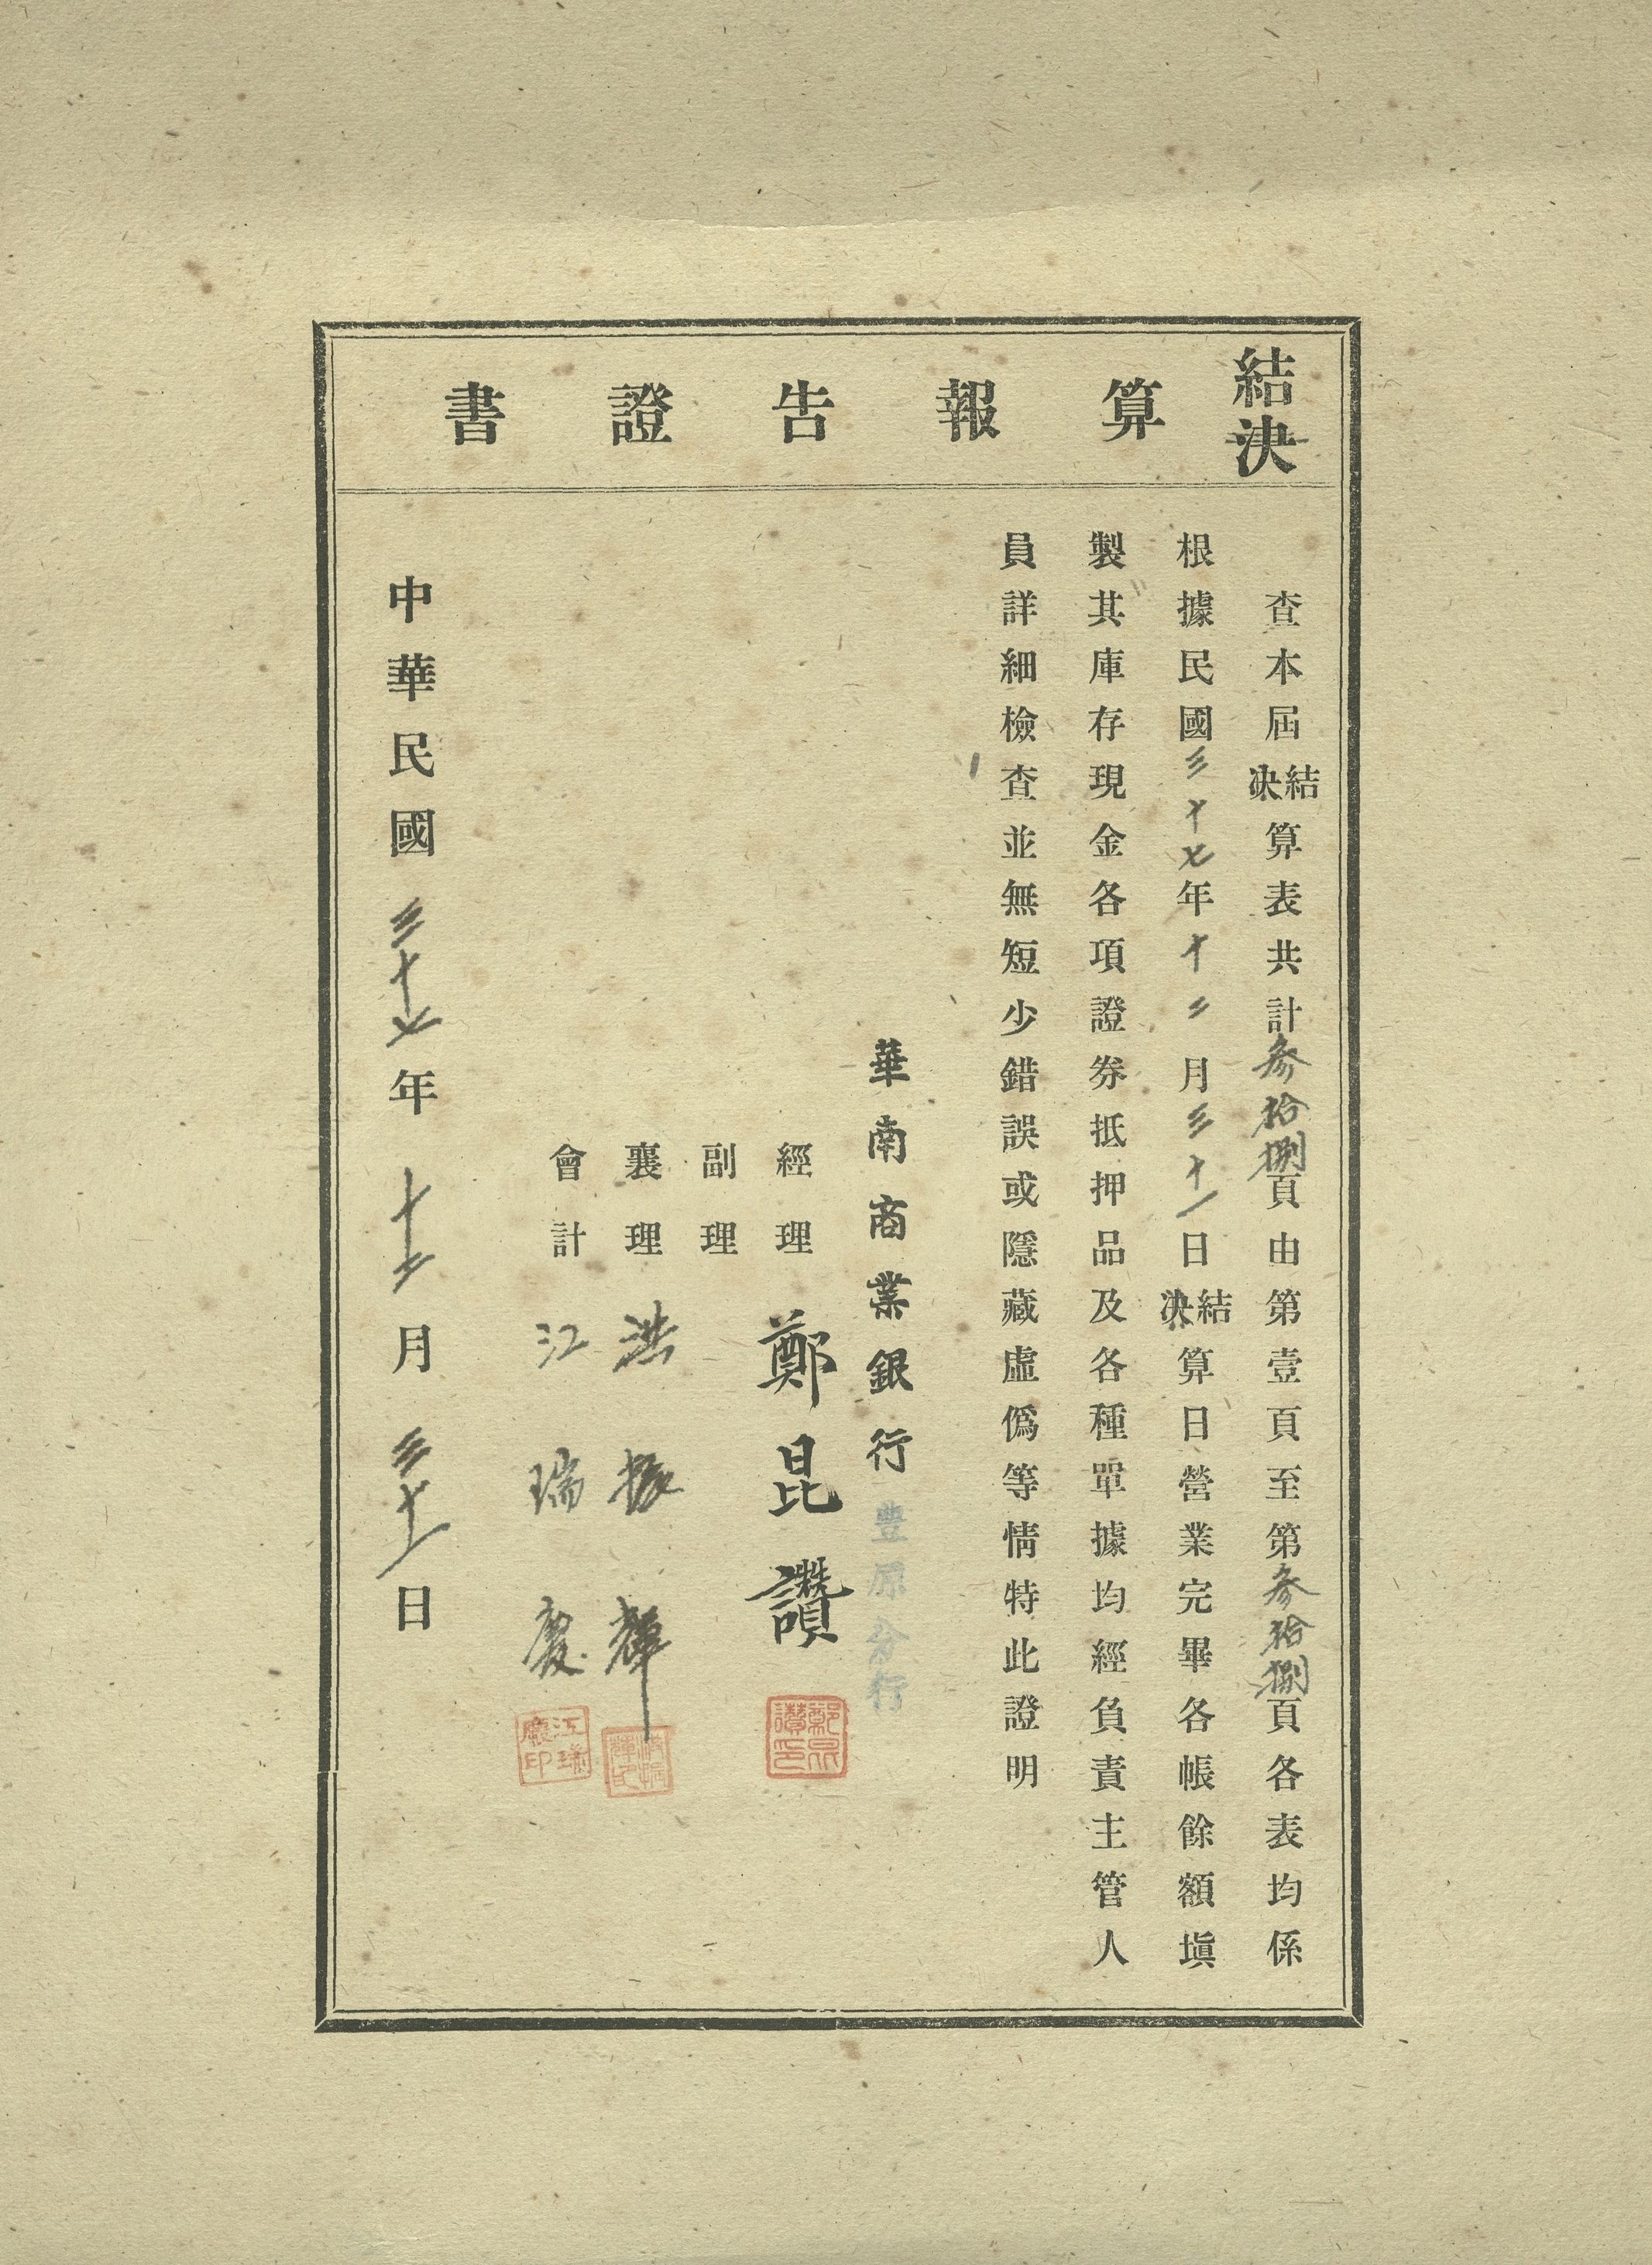 結決算報告證書
查本屆結決算表共計參拾捌頁由第壹頁至第參拾捌頁各表均係
根據民國三十七年十二月三十一日結決算日營業完畢各帳餘額塡
製其庫存現金各項證券抵押品及各種單據均經負責主管人
員詳細檢查並無短少錯誤或隱藏虛僞等情特此證明
華南商業銀行豐原分行
經理 鄭昆讚
副理
襄理 洪振輝
會計 江瑞慶
中華民國三十七年十二月三十一日